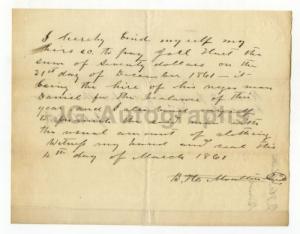 I hereby bind myself my
heirs &c. to pay Hunt the
sum of Seventy dollars on the
21st day of December 1861 – it
being the hire of his negro man
Daniel for the balance of this
year and I also bind myself
to furnish the
the usual amount of clothing
Witness my hand and seal this
4th day of March 1861
JG Autographs